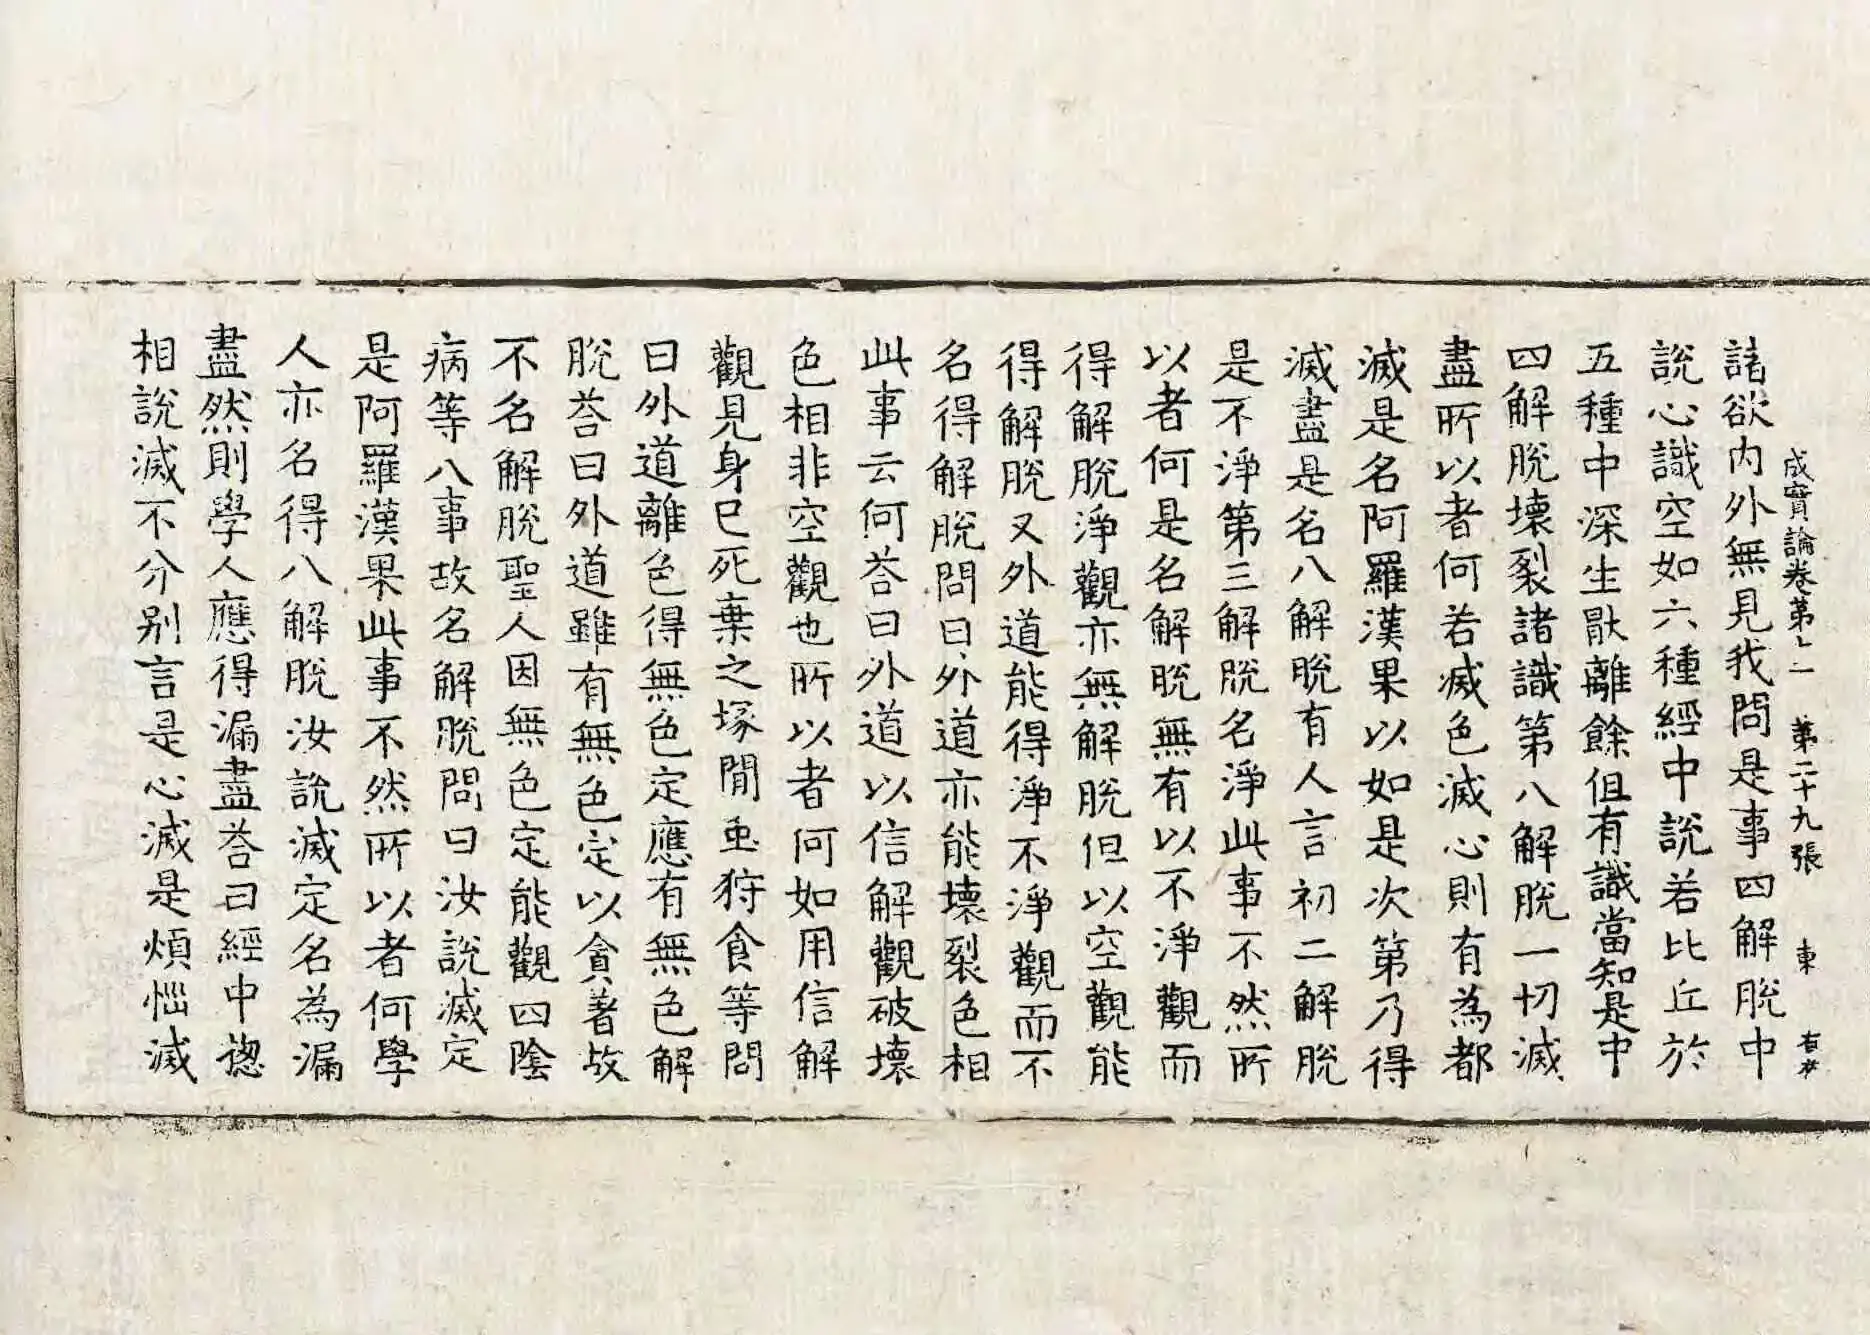 成實論卷第十二 第二十九張 東
諸欲內外無見我問是事四解脫中
說心識空如六種經中說若比丘於
五種中深生猒離餘但有識當知是中
四解脫壞裂諸識第八解脫一切滅
盡所以者何若滅色滅心則有為都
滅是名阿羅漢果以如是次第乃得
滅盡是名八解脫有人言初二解脫
是不淨第三解脫名淨此事不然所
以者何是名解脫無有以不淨觀而
得解脫淨觀亦無解脫但以空觀能
得解脫又外道能得淨不淨觀而不
名得解脫問曰外道亦能壞裂色相
此事云何荅曰外道以信解觀破壞
色相非空觀也所以者何如用信解
觀見身已死棄之塚間虫狩食等問
曰外道離色得無色定應有無色解
脫荅曰外道雖有無色定以貪著故
不名解脫聖人因無色定能觀四陰
病等八事故名解脫問曰汝說滅定
是阿羅漢果此事不然所以者何學
人亦名得八解脫汝說滅定名為漏
盡然則學人應得漏盡荅曰經中揔
相說滅不分别言是心滅是煩惱滅